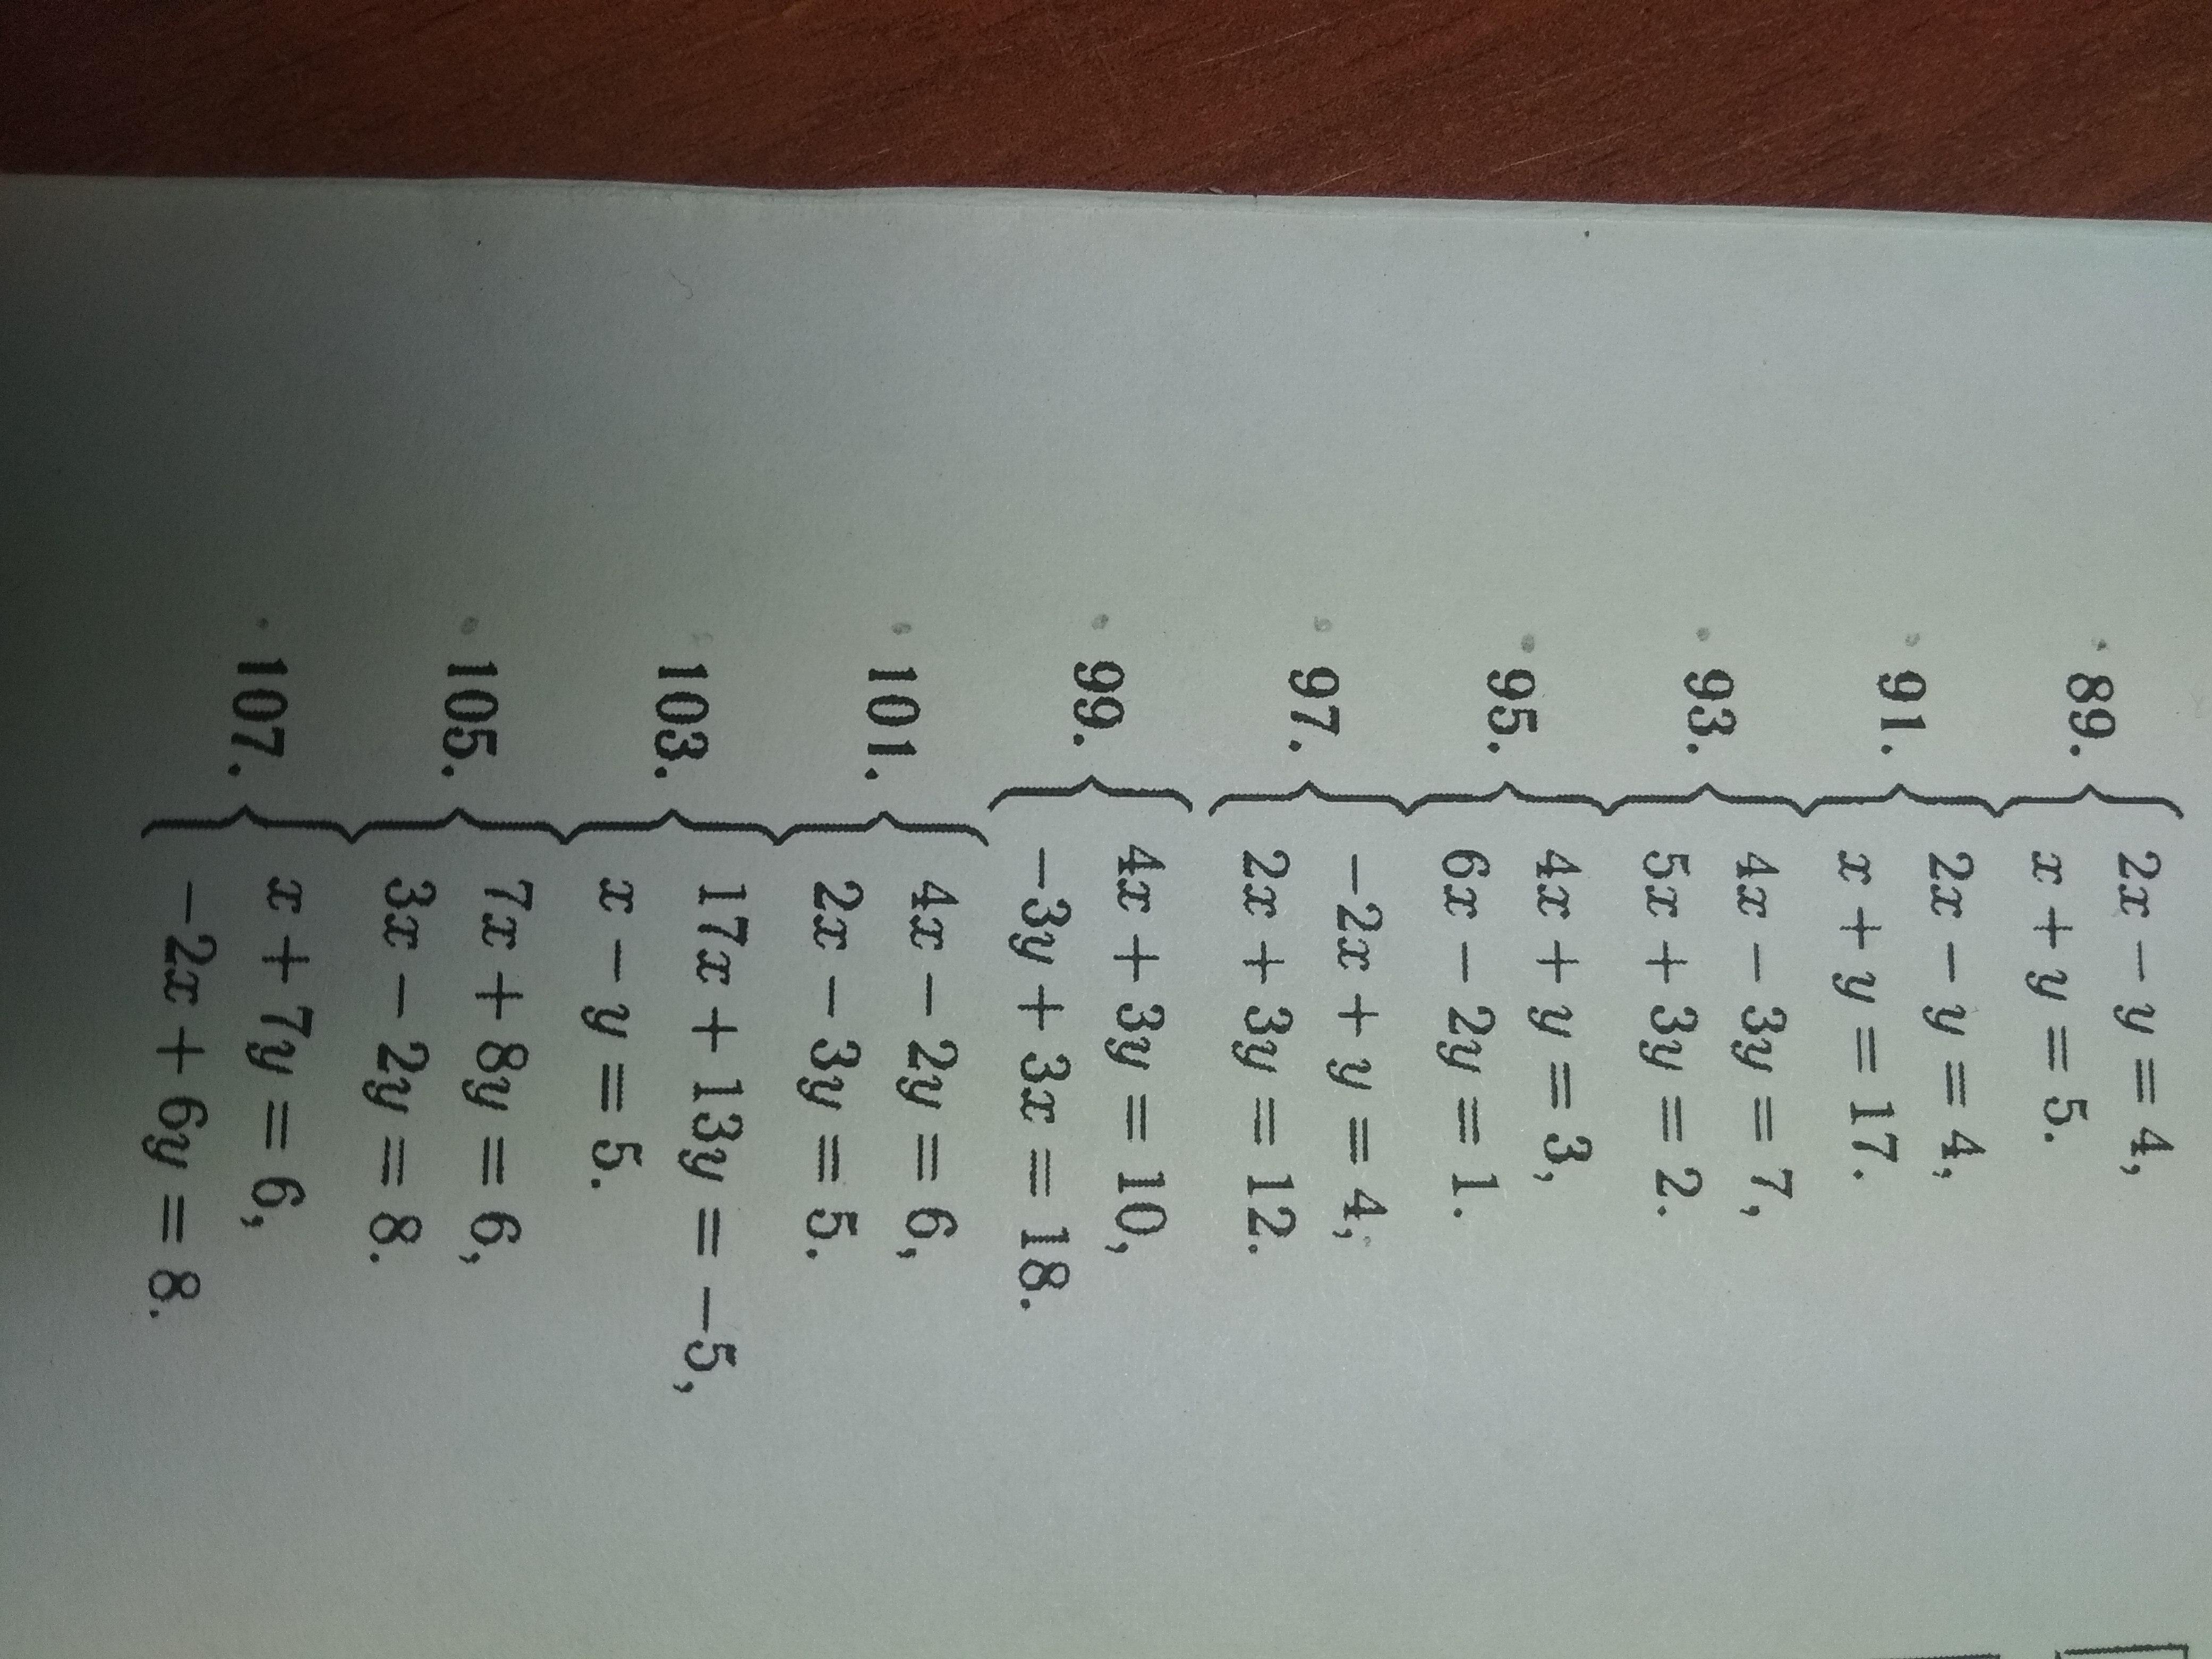 89. { 2x − y = 4,
x + y = 5.
91. { 2x − y = 4,
x + y = 17.
93. { 4x − 3y = 7,
5x + 3y = 2.
95. { 4x + y = 3,
6x − 2y = 1.
97. { −2x + y = 4,
2x + 3y = 12.
99. { 4x + 3y = 10,
−3y + 3x = 18.
101. { 4x − 2y = 6,
2x − 3y = 5.
103. { 17x + 13y = −5,
x − y = 5.
105. { 7x + 8y = 6,
3x − 2y = 8.
107. { x + 7y = 6,
−2x + 6y = 8.